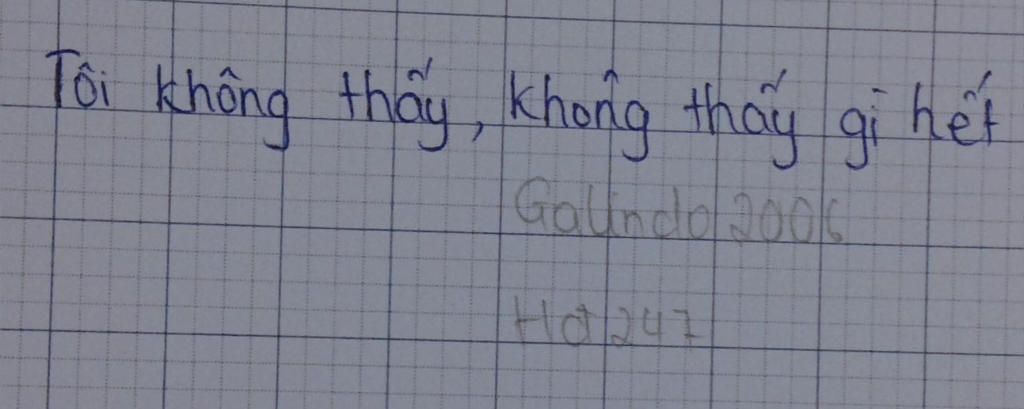 Tôi không thấy, không thấy gì hết
Galindo 2006
Hd 247